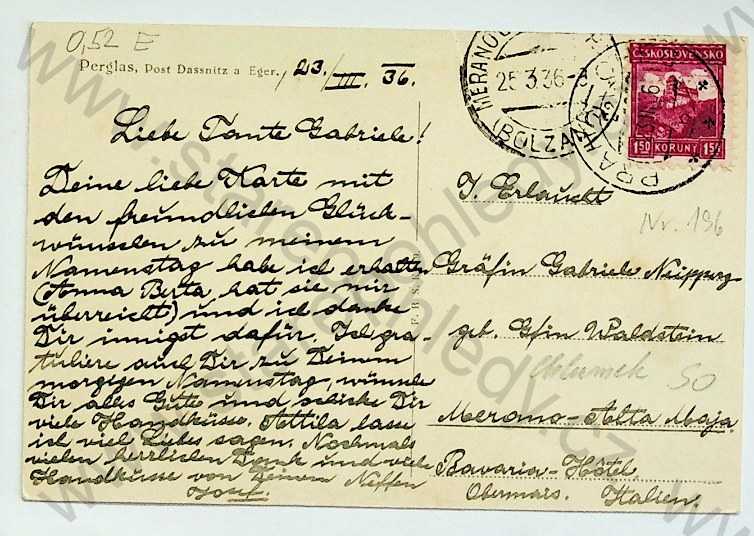 0,52 E
Perglas, Post Dassnitz a Eger. 23. III. 36.
Liebe Tante Gabriele!
Deine liebe Karte mit
den freundlichen Glück-
wünschen zu meinem
Namenstag habe ich erhalten
(Anna Berta hat sie mir
überreicht) und ich danke
Dir innigst dafür. Ich gra-
tuliere auch Dir zu Deinem
morgigen Namenstag, wünsche
Dir alles Gute und schicke Dir
viele Handküsse. Attila lasse
ich viel Liebes sagen. Nochmals
vielen herzlichen Dank und viele
Handküsse von Deinem Neffen
Josef.
MERANO
25 3 36
(BOLZA
PRAHA
ČESKOSLOVENSKO
1·50 KORUNY 1·50
I. Erlaucht
Nr. 196
Gräfin Gabriele Neipperg
geb. Gfin Waldstein
Chlumek 50
Merano-Alta Maja
Bavaria-Hôtel
Obermais. Italien.
www.starepohledy.cz